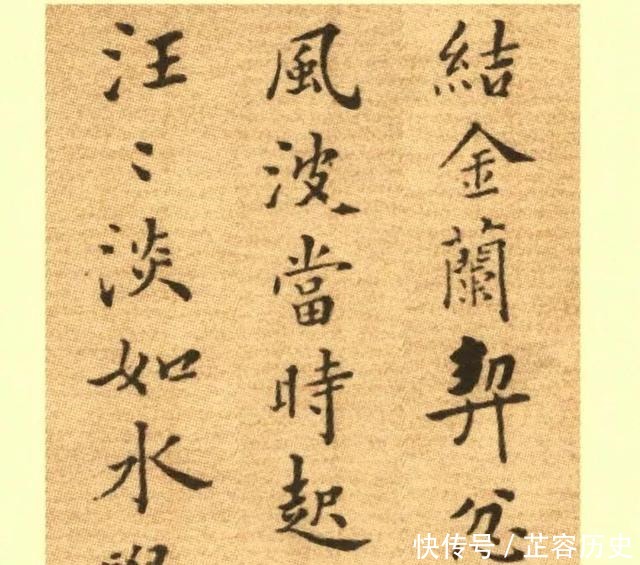 結金蘭契忿
風波當時起
汪〻淡如水
快传号 / 芷容历史